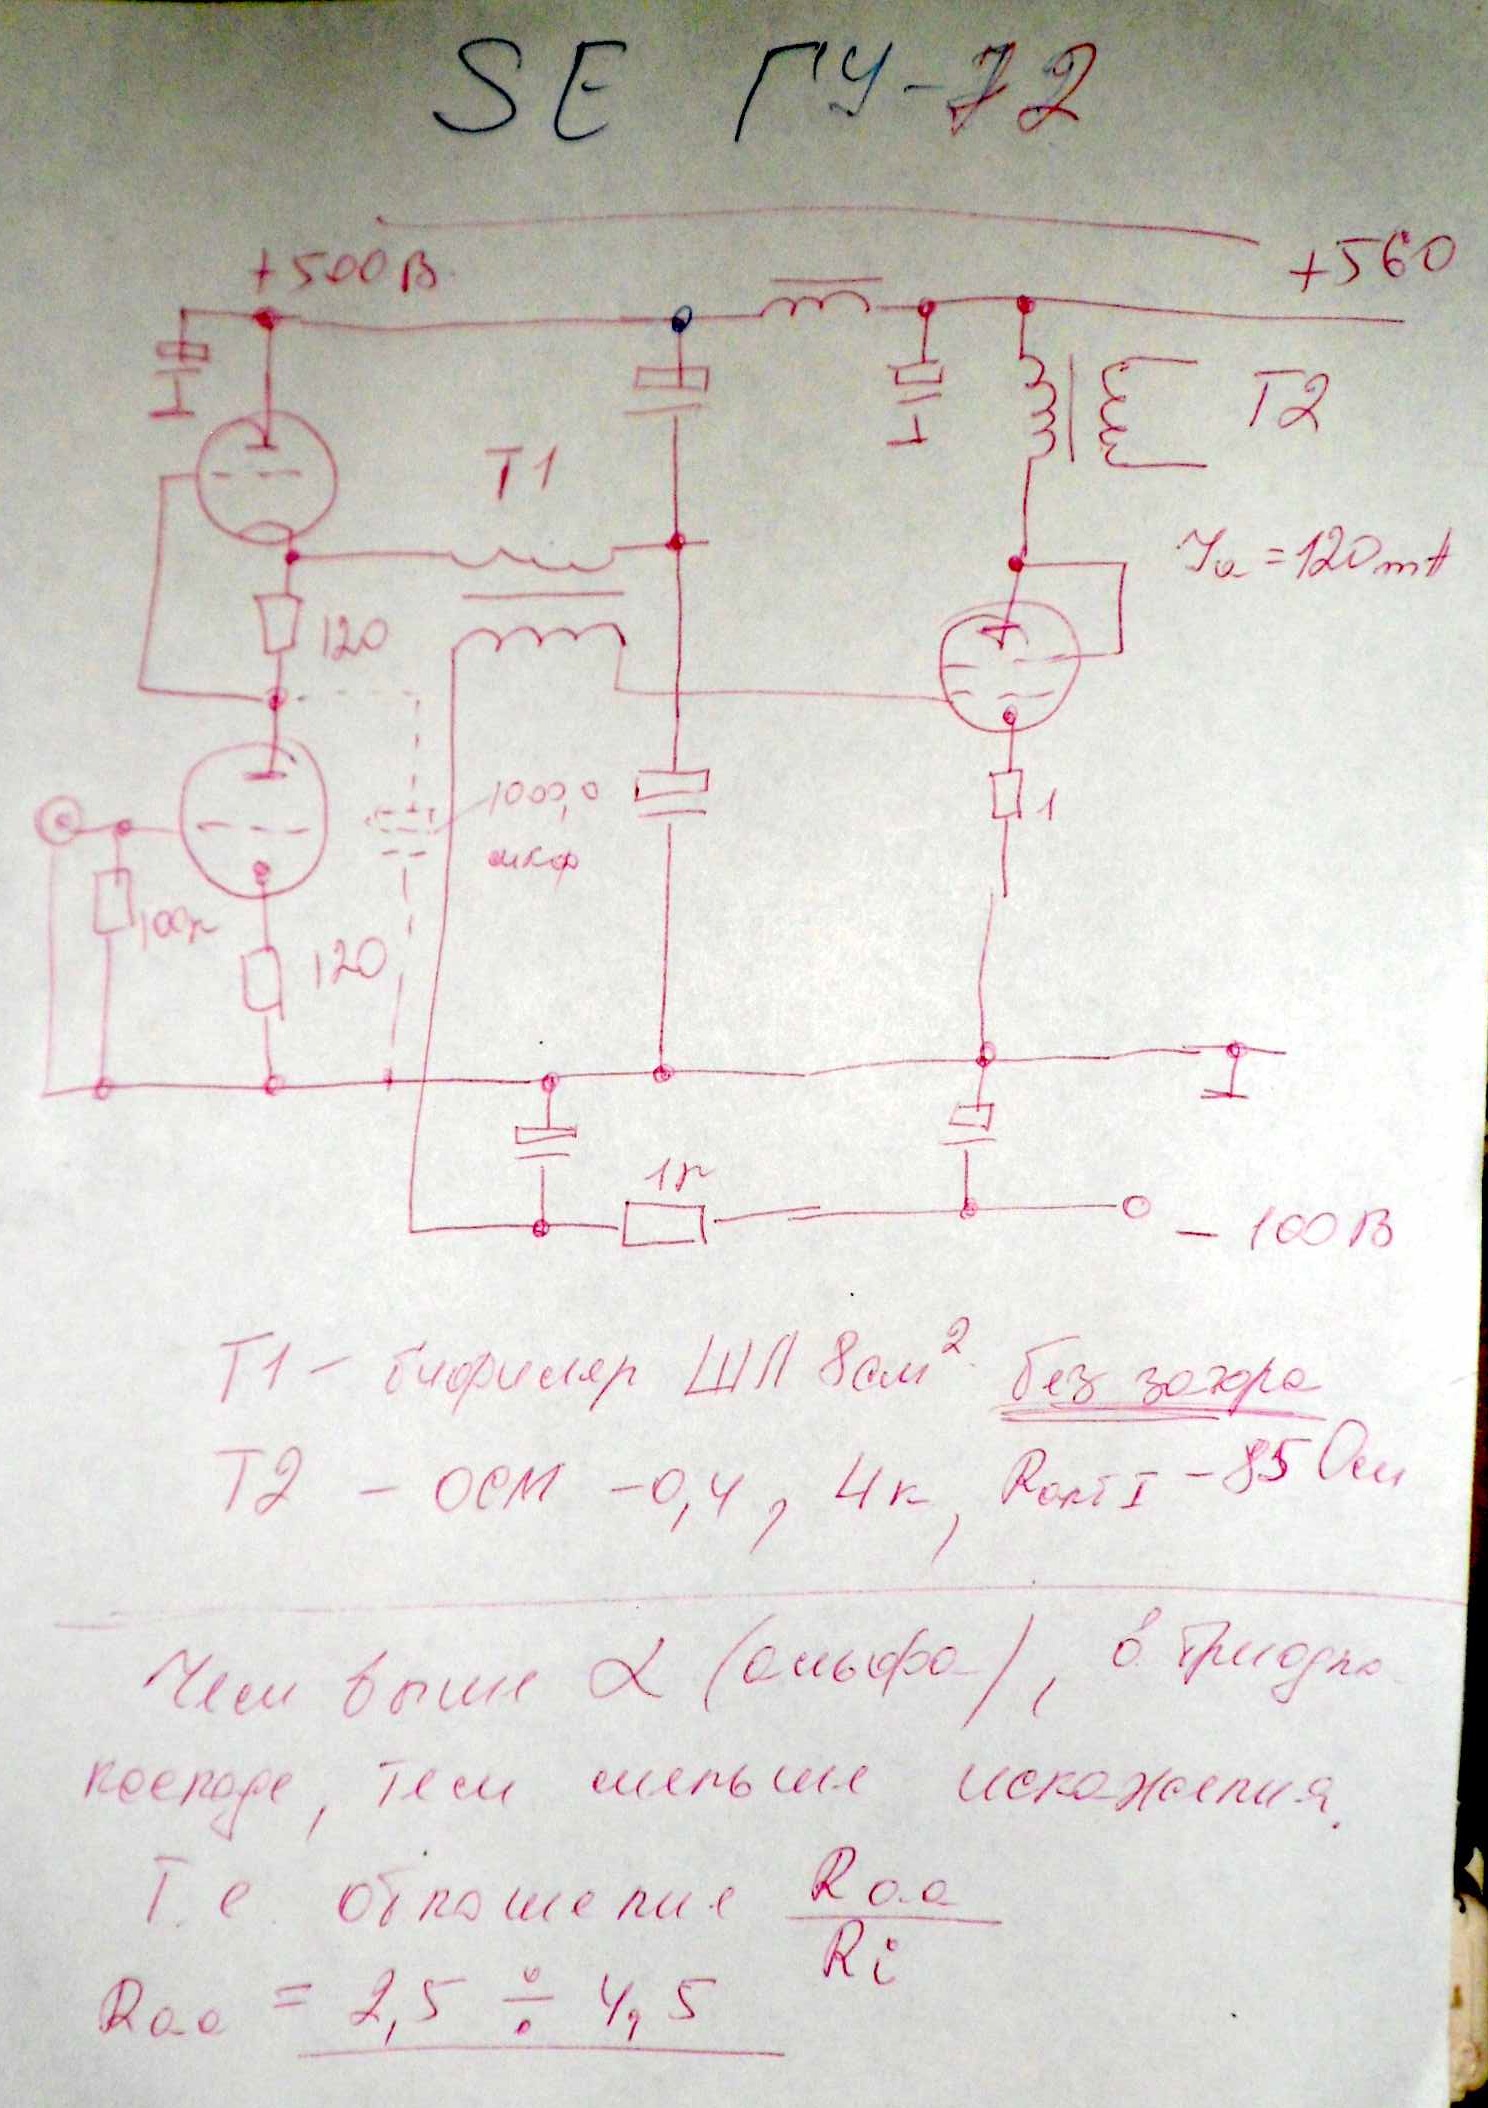 SE ГУ-72
+500В
+560
T1
T2
Ja = 120mA
120
1000,0
мкф
1
100к
120
1к
- 100В
T1 - бифиляр ШЛ 8см² без зазора
T2 - ОСМ -0,4, 4к, Rакт I - 85 Ом
Чем выше α (альфа), в триодно
каскаде, тем меньше искажения.
Т.е. отношение Raa
Ri
Raa = 2,5 ÷ 4,5